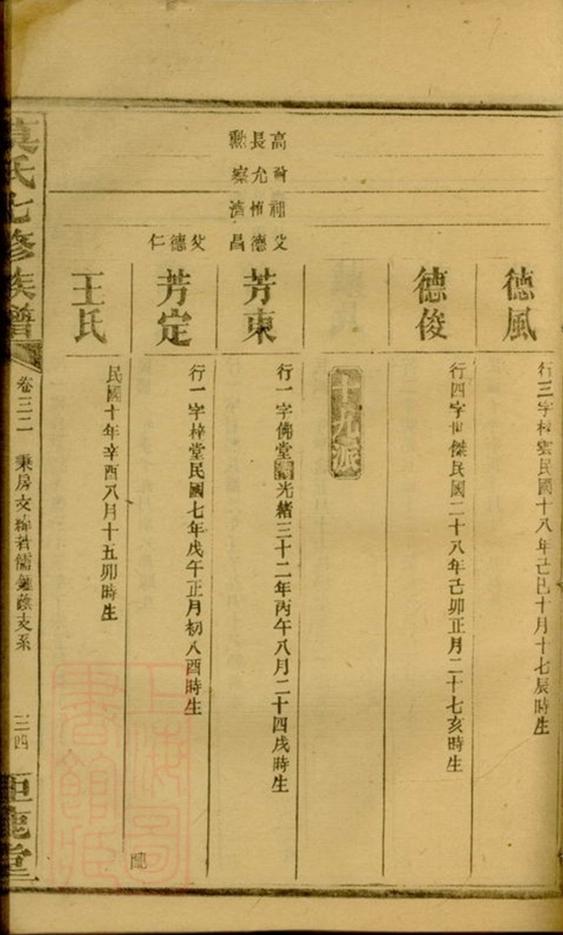 德風
行三字梓雲民國十八年己巳十月十七辰時生
德俊
行四字世傑民國二十八年己卯正月二十七亥時生
十九派
高
長允
勳察濟昌
父德
芳東
行一字佛堂清光緒三十二年丙午八月二十四戌時生
父德仁
芳定
行一字梓堂民國七年戊午正月初八酉時生
配
王氏
民國十年辛酉八月十五卯時生
莫氏七修族譜
卷三二
秉房支緯若儒
支系
三四
鉅鹿堂
上海圖書館藏